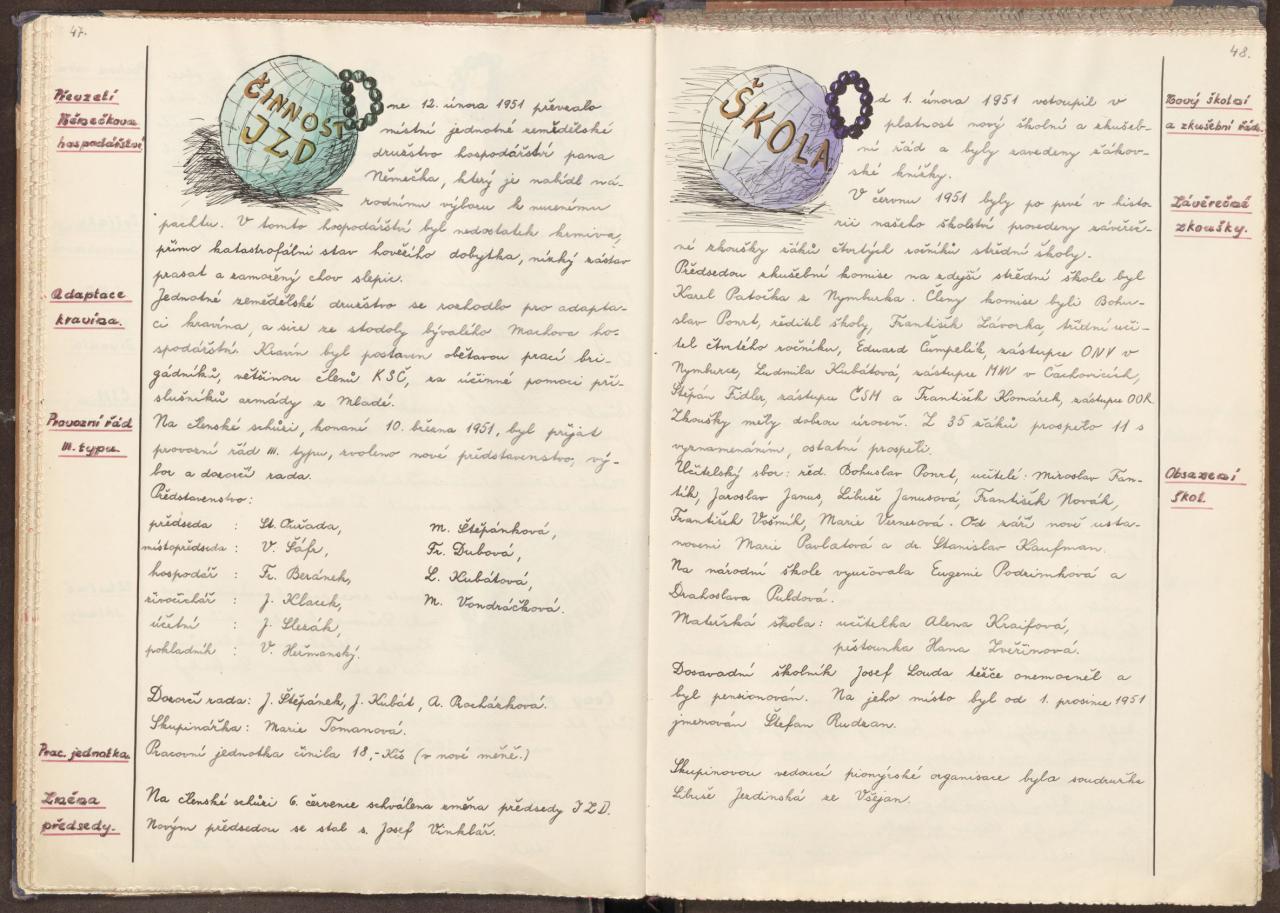 47.
ČINNOST
JZD
Převzetí
Němečkova
hospodářství
Dne 12. února 1951 převzalo
místní jednotné zemědělské
družstvo hospodářství pana
Němečka, který je nabídl ná-
rodnímu výboru k nucenému
pachtu. V tomto hospodářství byl nedostatek krmiva,
přímo katastrofální stav hovězího dobytka, nízký zástav
prasat a zamořený chov slepic.
Adaptace
kravína.
Jednotné zemědělské družstvo se rozhodlo pro adapta-
ci kravína, a sice ze stodoly bývalého Machova ho-
spodářství. Kravín byl postaven obětavou prací bri-
gádníků, většinou členů KSČ, za účinné pomoci pří-
slušníků armády z Mladé.
Provozní řád
III. typu.
Na členské schůzi, konané 10. března 1951, byl přijat
provozní řád III. typu, zvoleno nové představenstvo, vý-
bor a dozorčí rada.
Představenstvo:
předseda : St. Čuřada, M. Štěpánková,
místopředseda : V. Šáfr, Fr. Dubová,
hospodář : Fr. Beránek, L. Kubátová,
živočichář : J. Klacek, M. Vondráčková.
účetní : J. Slezák,
pokladník : V. Heřmanský.
Dozorčí rada: J. Štěpánek, J. Kubát, A. Procházková.
Skupinářka: Marie Tomanová.
Prac. jednotka.
Pracovní jednotka činila 18,- Kčs (v nové měně.)
Změna
předsedy.
Na členské schůzi 6. července schválena změna předsedy JZD.
Novým předsedou se stal s. Josef Vinklář.
48.
ŠKOLA
Nový školní
a zkušební řád.
Od 1. února 1951 vstoupil v
platnost nový školní a zkušeb-
ní řád a byly zavedeny žákov-
ské knížky.
Závěrečné
zkoušky.
V červnu 1951 byly po prvé v histo-
rii našeho školství provedeny závěreč-
né zkoušky žáků čtvrtých ročníků střední školy.
Předsedou zkušební komise na zdejší střední škole byl
Karel Patočka z Nymburka. Členy komise byli Bohu-
slav Ponrt, ředitel školy, František Závorka, třídní uči-
tel čtvrtého ročníku, Eduard Čumpelík, zástupce ONV v
Nymburce, Ludmila Kubátová, zástupce MNV v Čachovicích,
Štěpán Fidler, zástupce ČSM a František Komárek, zástupce OOR.
Zkoušky měly dobrou úroveň. Z 35 žáků prospělo 11 s
vyznamenáním, ostatní prospěli.
Obsazení
škol.
Učitelský sbor: řed. Bohuslav Ponrt, učitelé: Miroslav Fan-
tík, Jaroslav Janus, Libuše Janusová, František Novák,
František Vošmík, Marie Vernerová. Od září nově usta-
noveni Marie Pavlatová a dr. Stanislav Kaufman.
Na národní škole vyučovala Eugenie Podzimková a
Drahoslava Puldová.
Mateřská škola: učitelka Alena Kraifová,
pěstounka Hana Zvěřinová.
Dosavadní školník Josef Louda těžce onemocněl a
byl pensionován. Na jeho místo byl od 1. prosince 1951
jmenován Štefan Rudzan.
Skupinovou vedoucí pionýrské organisace byla soudružka
Libuše Jezdinská ze Všejan.